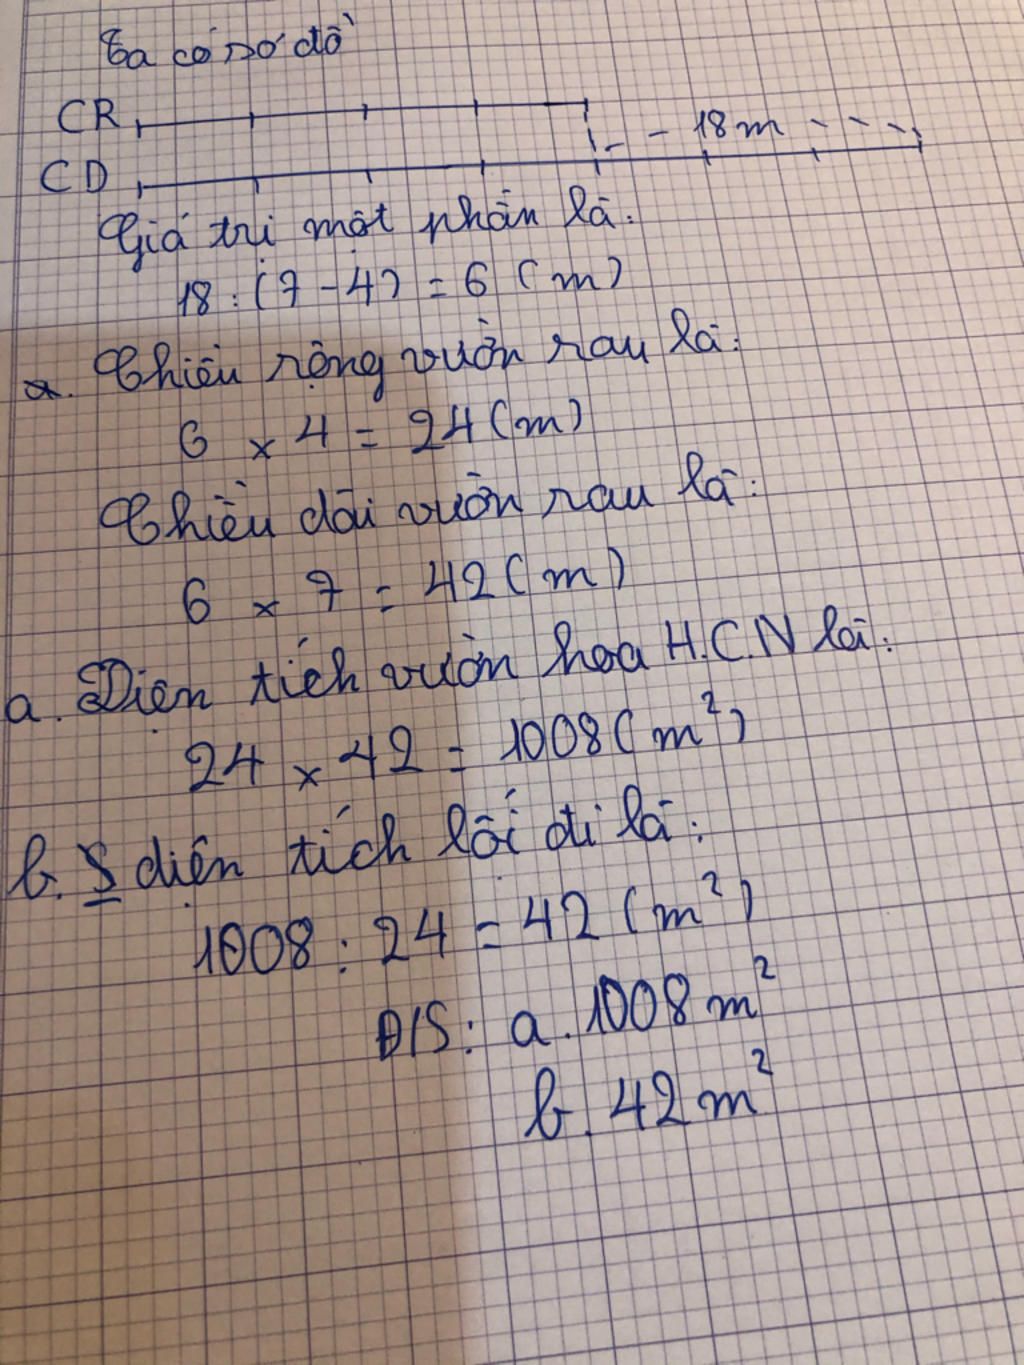 Ta có sơ đồ
CR
18m
CD
Giá trị một phần là:
18 : (7 - 4) = 6 (m)
a. Chiều rộng vườn rau là:
6 × 4 = 24 (m)
Chiều dài vườn rau là:
6 × 7 = 42 (m)
a. Diện tích vườn hoa H.C.N là:
24 × 42 = 1008 (m²)
b. S diện tích lối đi là:
1008 : 24 = 42 (m²)
Đ/S: a. 1008 m²
b. 42 m²